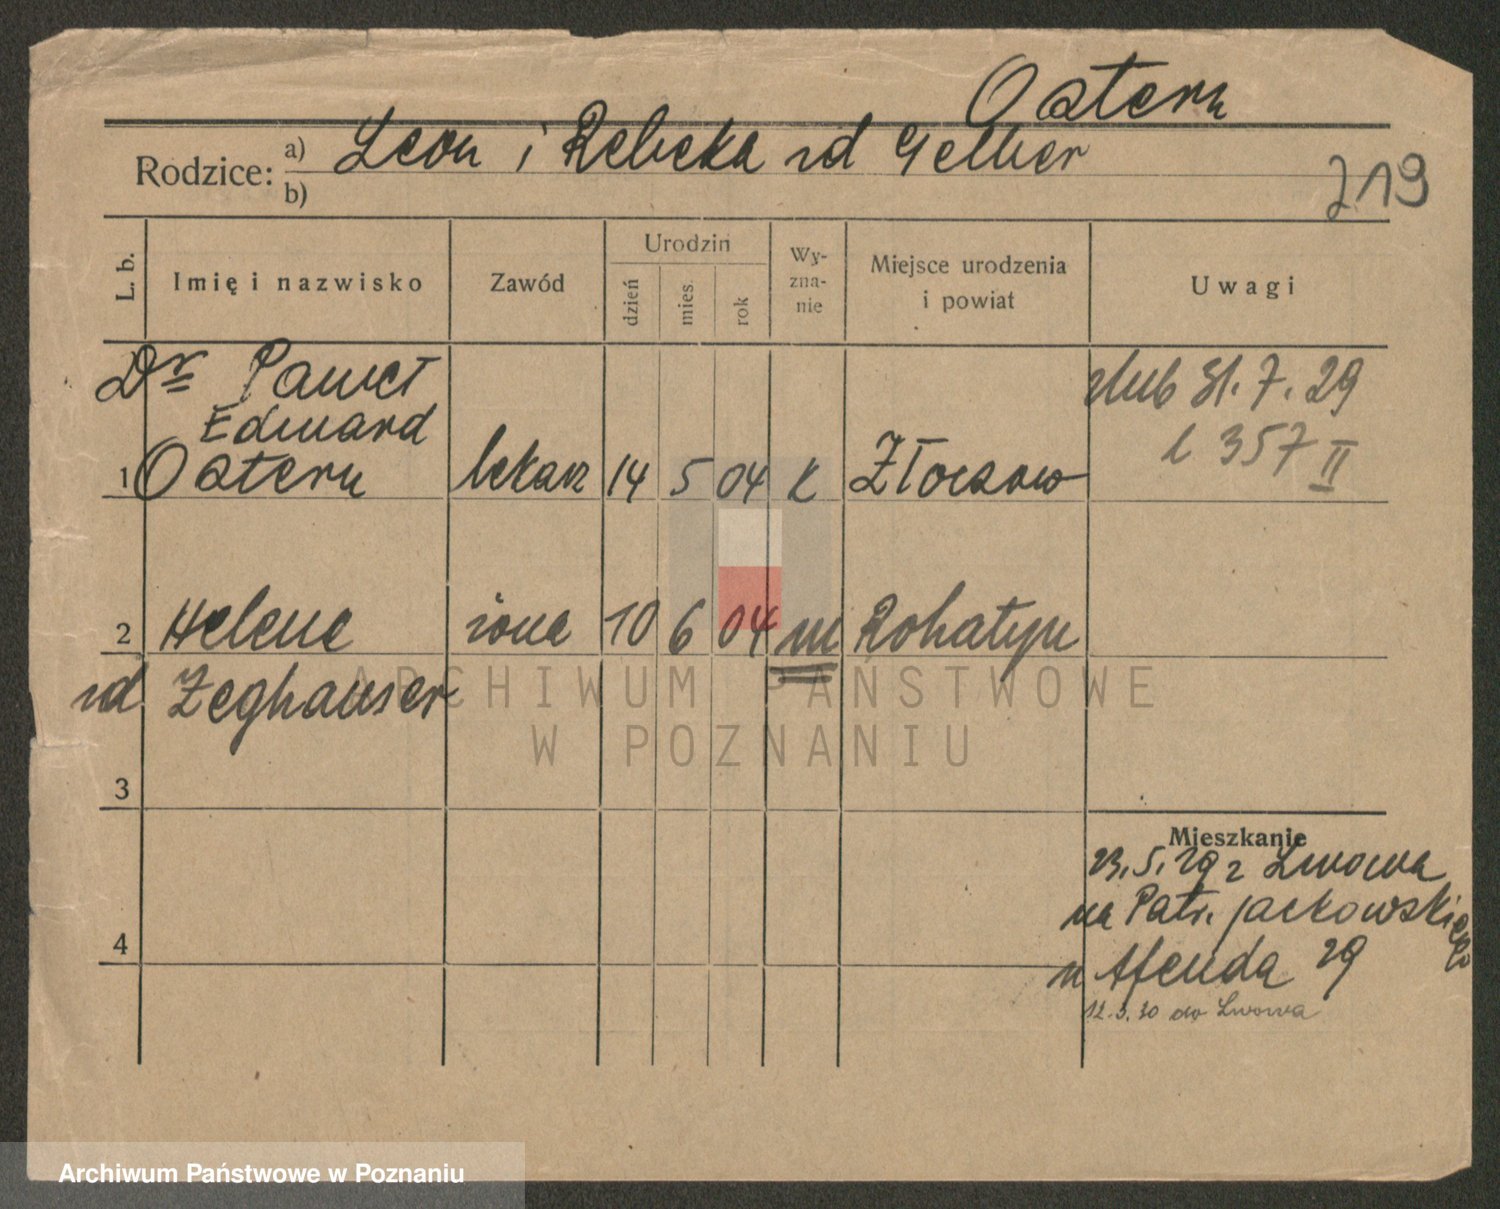 Ostern
Rodzice: a) Leon i Rebeka zd Gelber
b)
219
L. b. Imię i nazwisko Zawód Urodzin dzień mies. rok Wy-zna-nie Miejsce urodzenia i powiat Uwagi
Dr Paweł
Edward
1 Ostern lekarz 14 5 04 k Złoczow
ślub 31.7.29
l 357 II
2 Helene żona 10 6 04 m Rohatyn
zd Zeghauser
3
4
Mieszkanie
23.5.29 z Lwowa
na Patr. Jackowskiego
u Afenda 29
12.3.30 do Lwowa
ARCHIWUM PAŃSTWOWE
W POZNANIU
Archiwum Państwowe w Poznaniu